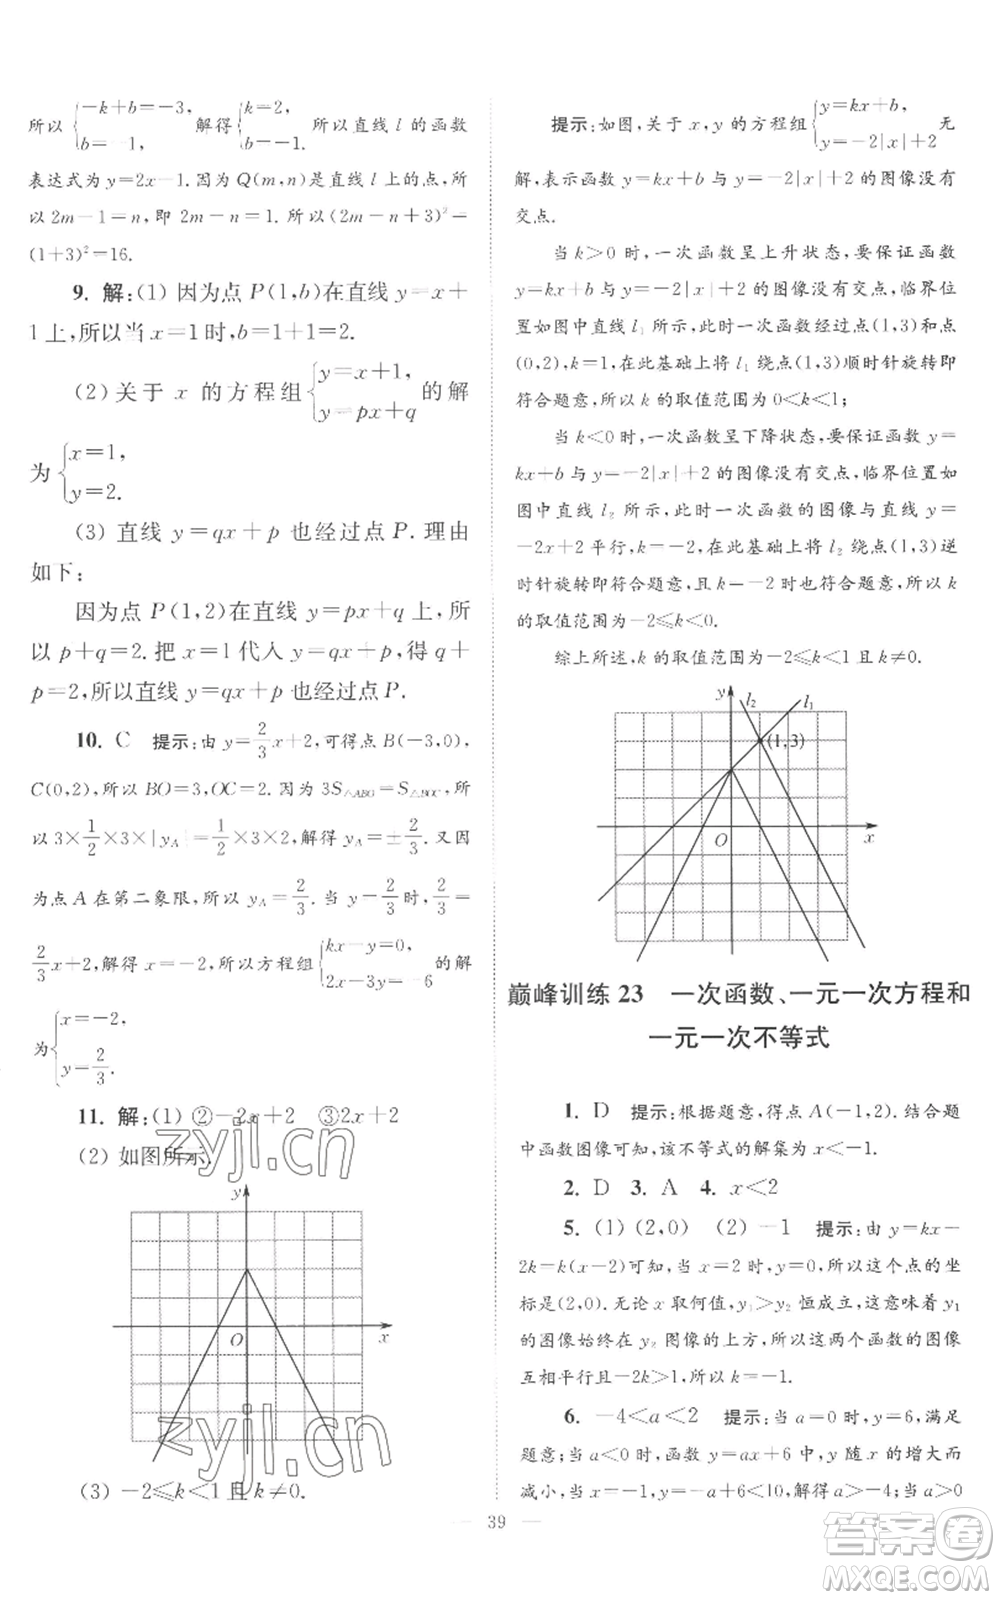 所以{-k+b=-3, b=-1, 解得{k=2, b=-1. 所以直线 l 的函数
表达式为 y=2x-1. 因为 Q(m,n)是直线 l 上的点,所
以 2m-1=n,即 2m-n=1. 所以(2m-n+3)²=
(1+3)²=16.
9. 解:(1) 因为点 P(1,b)在直线 y=x+
1上,所以当 x=1时,b=1+1=2.
(2)关于 x 的方程组{y=x+1, y=px+q 的解
为{x=1, y=2.
(3) 直线 y=qx+p 也经过点 P. 理由
如下:
因为点 P(1,2)在直线 y=px+q 上,所
以 p+q=2. 把 x=1 代入 y=qx+p,得 q+
p=2,所以直线 y=qx+p 也经过点 P.
10. C 提示:由 y=2/3x+2,可得点 B(-3,0),
C(0,2),所以 BO=3,OC=2. 因为 3S△ABO=S△BOC,所
以 3×1/2×3×|yA|=1/2×3×2,解得 yA=±2/3. 又因
为点 A 在第二象限,所以 yA=2/3. 当 y=2/3时,2/3=
2/3x+2,解得 x=-2,所以方程组{kx-y=0, 2x-3y=-6 的解
为{x=-2, y=2/3.
11. 解:(1) ②-2x+2 ③2x+2
(2) 如图所示.
y
O
x
(3) -2≤k<1 且 k≠0.
提示:如图,关于 x,y 的方程组{y=kx+b, y=-2|x|+2 无
解,表示函数 y=kx+b 与 y=-2|x|+2 的图像没有
交点.
当 k>0 时,一次函数呈上升状态,要保证函数
y=kx+b 与 y=-2|x|+2 的图像没有交点,临界位
置如图中直线 l₁ 所示,此时一次函数经过点(1,3)和点
(0,2),k=1,在此基础上将 l₁ 绕点(1,3)顺时针旋转即
符合题意,所以 k 的取值范围为 0<k<1;
当 k<0 时,一次函数呈下降状态,要保证函数 y=
kx+b 与 y=-2|x|+2 的图像没有交点,临界位置如
图中直线 l₂ 所示,此时一次函数的图像与直线 y=
-2x+2 平行,k=-2,在此基础上将 l₂ 绕点(1,3)逆
时针旋转即符合题意,且 k=-2 时也符合题意,所以 k
的取值范围为-2≤k<0.
综上所述,k 的取值范围为-2≤k<1 且 k≠0.
y
l₂
l₁
(1,3)
O
x
巅峰训练 23 一次函数、一元一次方程和
一元一次不等式
1. D 提示:根据题意,得点 A(-1,2). 结合题
中函数图像可知,该不等式的解集为 x<-1.
2. D 3. A 4. x<2
5. (1) (2,0) (2) -1 提示:由 y=kx-
2k=k(x-2)可知,当 x=2 时,y=0,所以这个点的坐
标是(2,0). 无论 x 取何值,y₁>y₂ 恒成立,这意味着 y₁
的图像始终在 y₂ 图像的上方,所以这两个函数的图像
互相平行且-2k>1,所以 k=-1.
6. -4<a<2 提示:当 a=0 时,y=6,满足
题意;当 a<0 时,函数 y=ax+6 中,y 随 x 的增大而
减小,当 x=-1 时,y=-a+6<10,所以 a>-4;当 a>0
39
zyjl.cn
zyjl.cn
答案卷
MXQE.COM